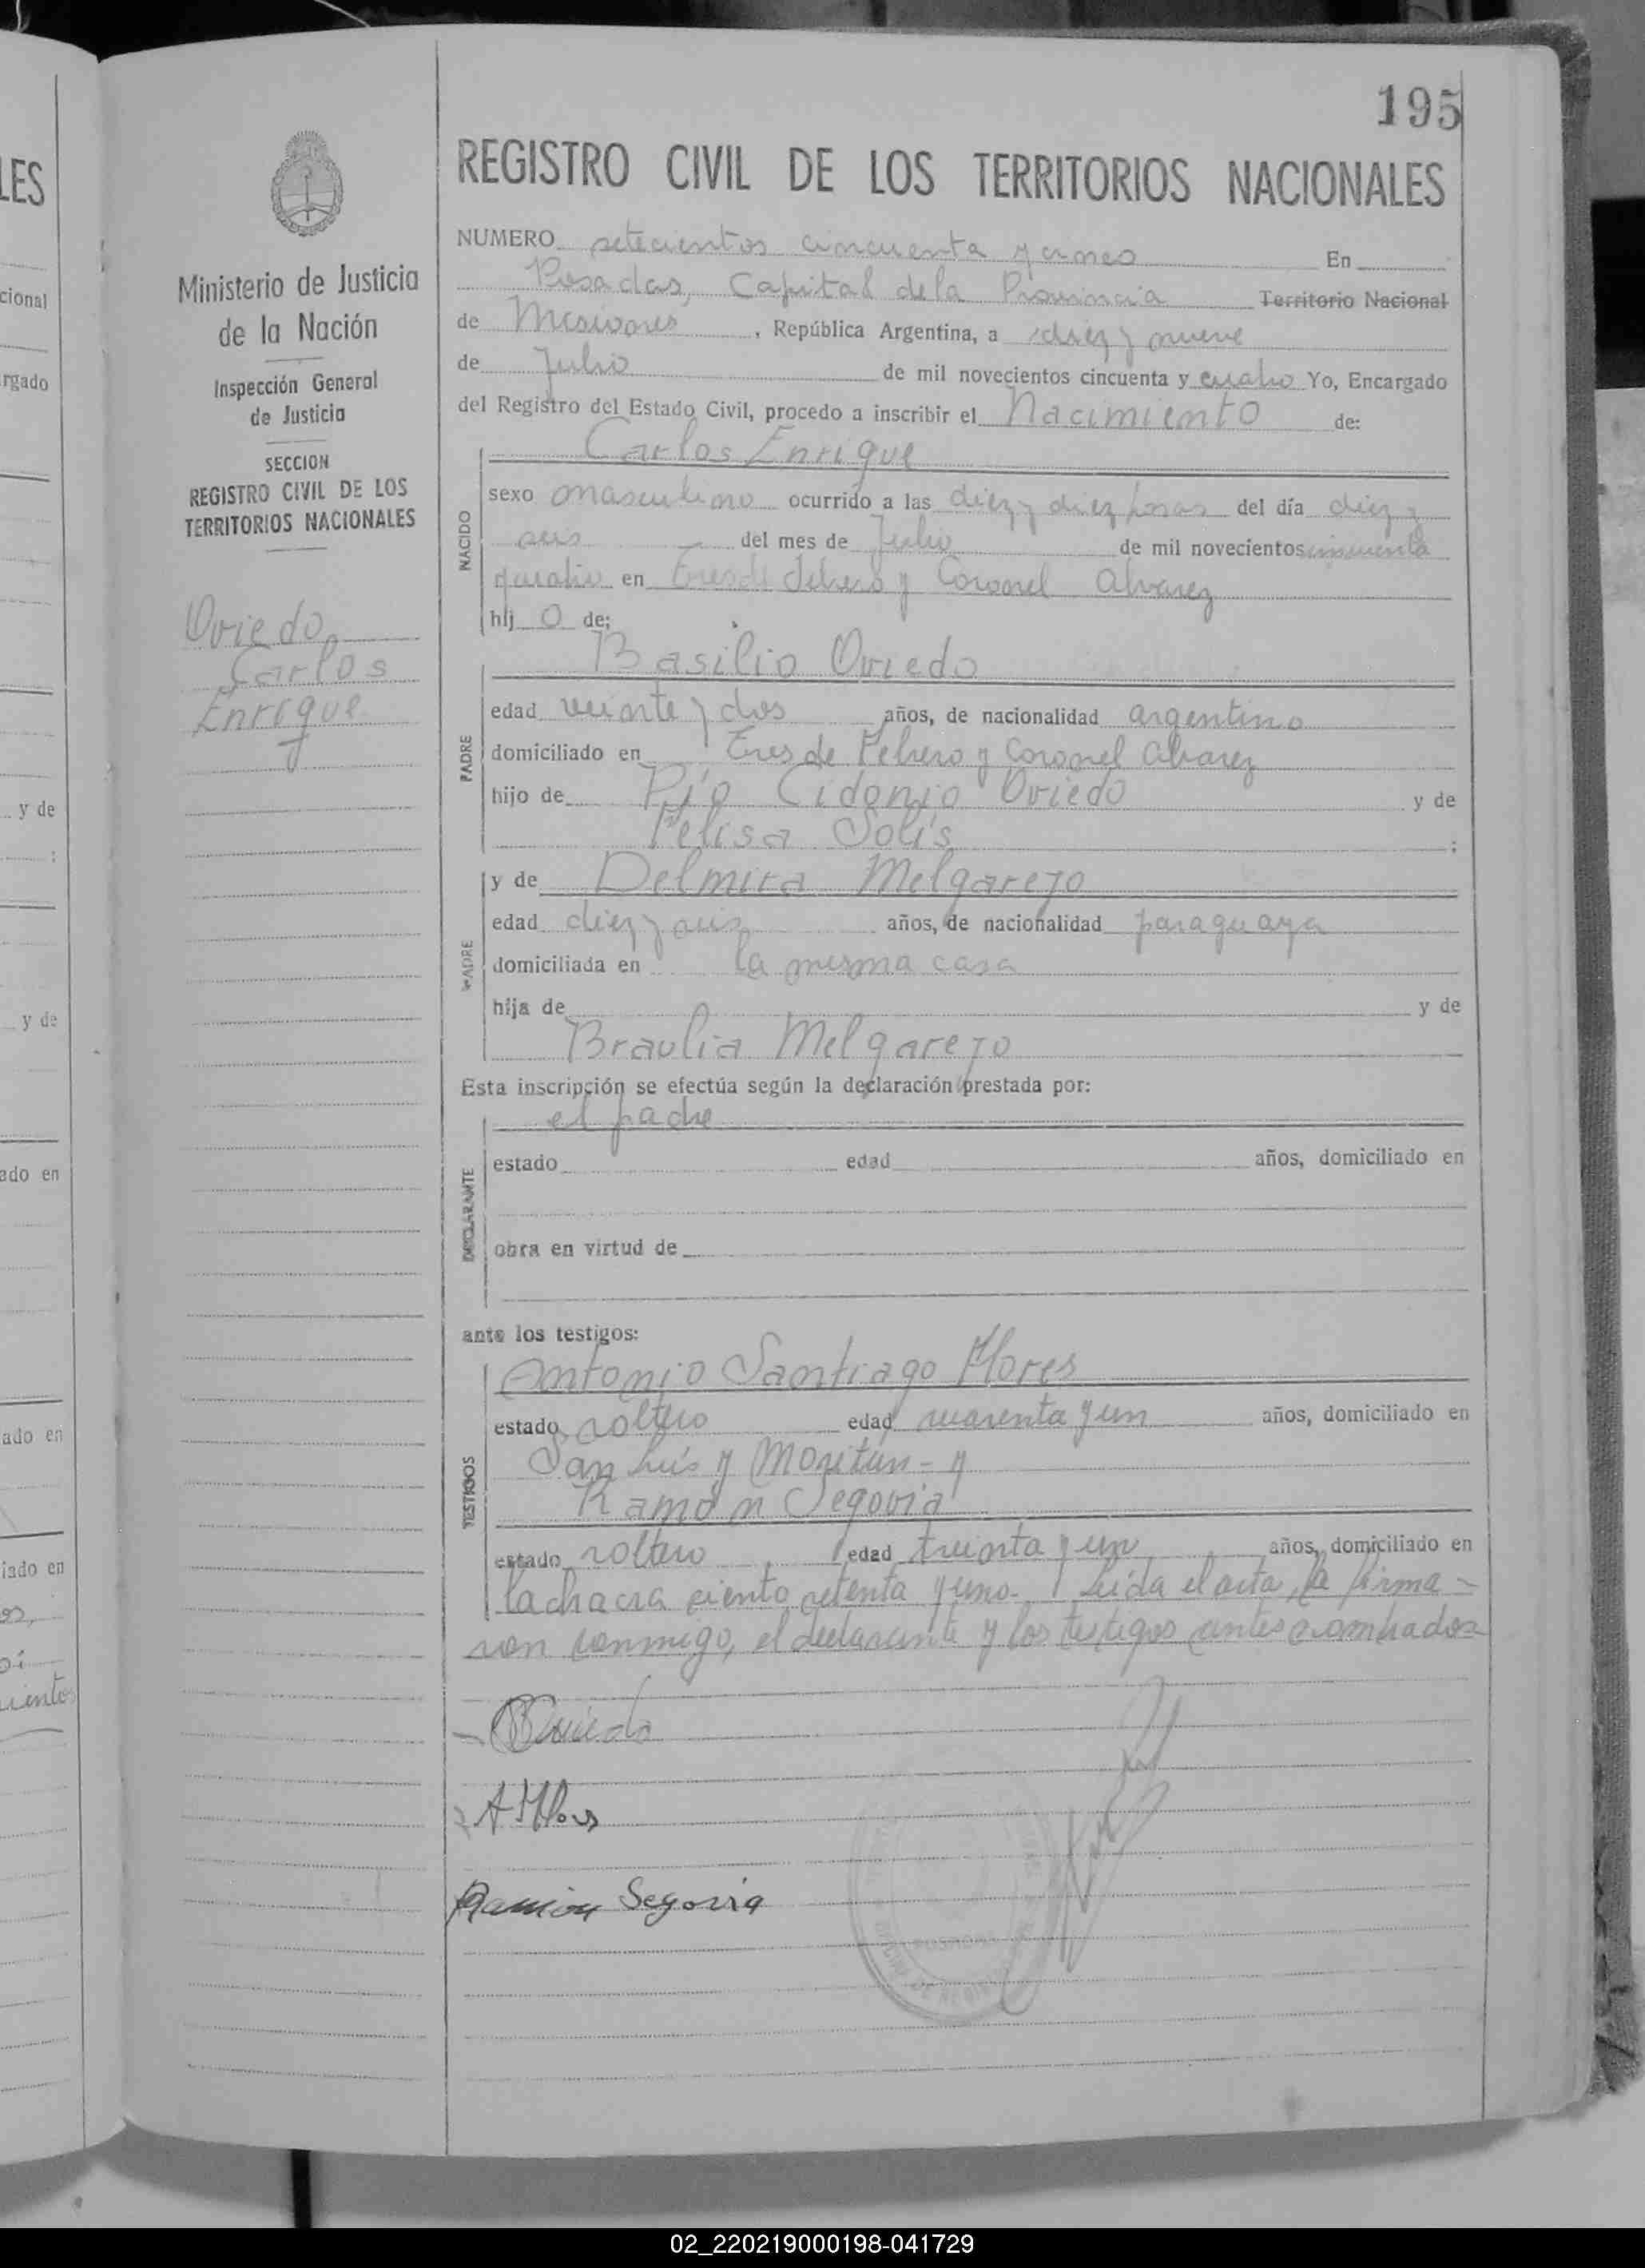 195
REGISTRO CIVIL DE LOS TERRITORIOS NACIONALES
Ministerio de Justicia
de la Nación
Inspección General
de Justicia
SECCION
REGISTRO CIVIL DE LOS
TERRITORIOS NACIONALES
Oviedo
Carlos
Enrique
NUMERO setecientos cincuenta y cinco En
Posadas, Capital de la Provincia Territorio Nacional
de Misiones, República Argentina, a diez y nueve
de Julio de mil novecientos cincuenta y cuatro Yo, Encargado
del Registro del Estado Civil, procedo a inscribir el Nacimiento de:
Carlos Enrique
NACIDO
sexo masculino ocurrido a las diez y diez horas del día diez y
seis del mes de Julio de mil novecientos cincuenta
y cuatro en Tres de Febrero y Coronel Alvarez
hij o de:
Basilio Oviedo
PADRE
edad veinte y dos años, de nacionalidad argentino
domiciliado en Tres de Febrero y Coronel Alvarez
hijo de Pío Cidonio Oviedo y de
Felisa Solís ;
y de Delmira Melgarejo
MADRE
edad diez y seis años, de nacionalidad paraguaya
domiciliada en la misma casa
hija de y de
Braulia Melgarejo
Esta inscripción se efectúa según la declaración prestada por:
el padre
DECLARANTE
estado edad años, domiciliado en
obra en virtud de
ante los testigos:
Antonio Santiago Flores
TESTIGOS
estado soltero edad cuarenta y un años, domiciliado en
San Luis y - y
Ramón Segovia
estado soltero edad treinta y un años, domiciliado en
la chacra ciento setenta y uno. Leída el acta, la firma-
ron conmigo, el declarante y los testigos antes nombrados
BOviedo
ASFlores
Ramon Segovia
POSADAS
y de
y de
02_220219000198-041729